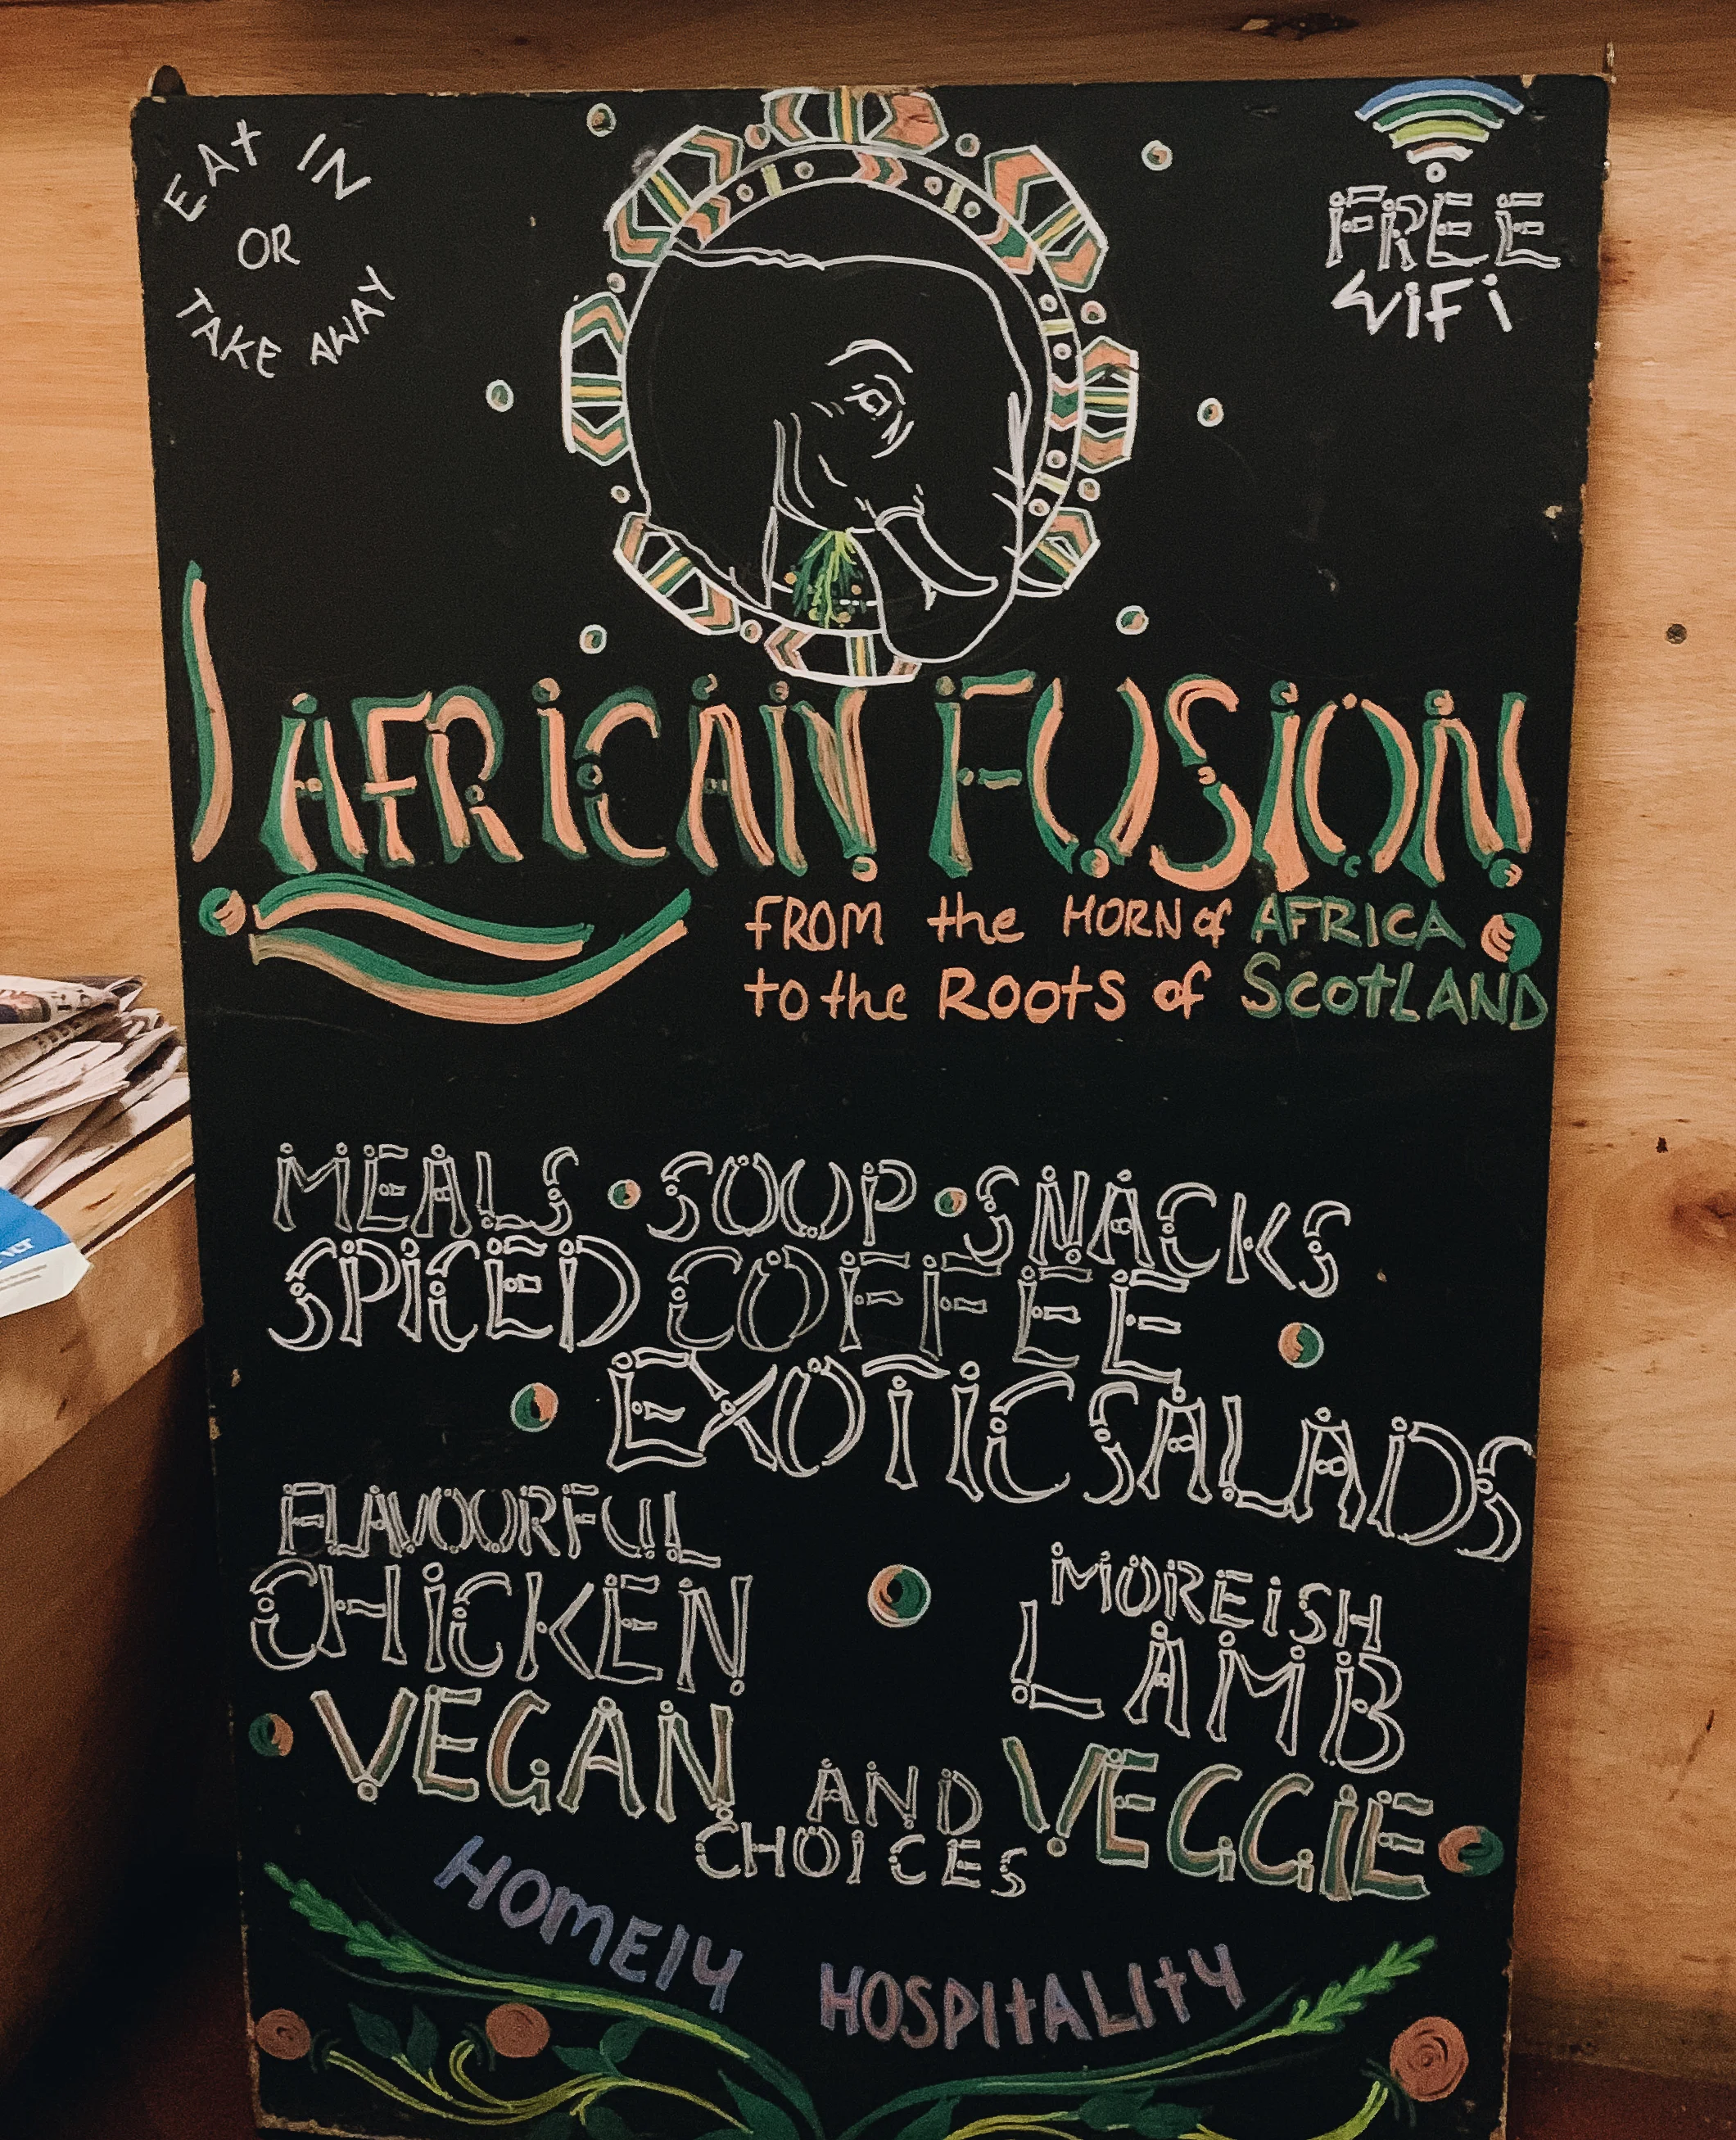 EAT IN
OR
TAKE AWAY
FREE
WIFI
AFRICAN FUSION
FROM the HORN of AFRICA
to the ROOtS of ScotLAND
MEALS • SOUP • SNACKS
SPICED COFFEE
EXOTIC SALADS
FLAVOURFUL
CHICKEN
MOREISH
LAMB
VEGAN AND VEGGIE
CHOICES
HOMELY HOSPITALITY